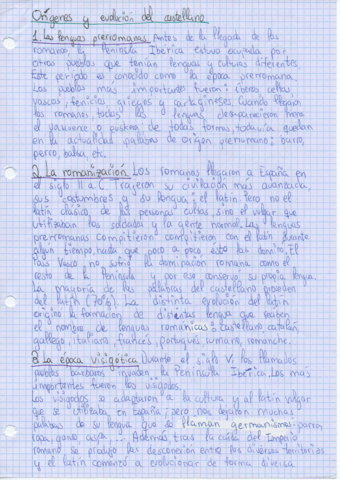 Orígenes y evolución del castellano
1. Las lenguas prerromanas. Antes de la llegada de los
romanos, la Península Ibérica estuvo ocupada por
otros pueblos que tenían lenguas y culturas diferentes.
Este periodo es conocido como la época prerromana.
Los pueblos más importantes fueron: iberos, celtas
vascos, fenicios, griegos y cartagineses. Cuando llegaron
los romanos, todas las lenguas desaparecieron menos
el vascuence o euskera, de todas formas, todavía quedan
en la actualidad palabras de origen prerromano: barro,
perro, bahía etc.
2. La romanización. Los romanos llegaron a España en
el siglo II a.C. Trajeron su civilización más avanzada,
sus costumbres y su lengua; el latín. Pero, no el
latín clásico, de las personas cultas, sino el vulgar que
utilizaban los soldados y la gente normal. Las lenguas
prerromanas compitieron con el latín durante
algún tiempo, hasta que poco a poco este las dominó. El
País Vasco, no sufrió la dominación romana como el
resto de la Península y por eso conservó su propia lengua.
La mayoría de las palabras del castellano proceden
del latín (70%). La distinta evolución del latín
originó la formación de distintas lenguas que reciben
el nombre de lenguas románicas: Castellano, catalán,
gallego, italiano, francés, portugués, rumano, romanche.
3. La época visigótica. Durante el siglo V, los llamados
pueblos bárbaros invaden la Península Ibérica. Los más
importantes fueron los visigodos.
Los visigodos se adaptaron a la cultura y al latín vulgar
que se utilizaba en España; pero nos dejaron muchas
palabras de su lengua que se llaman germanismos: parra,
ropa, ganso, aspa... Además tras la caída del Imperio
romano se produjo la desconexión entre los diversos territorios
y el latín comenzó a evolucionar de forma diversa.